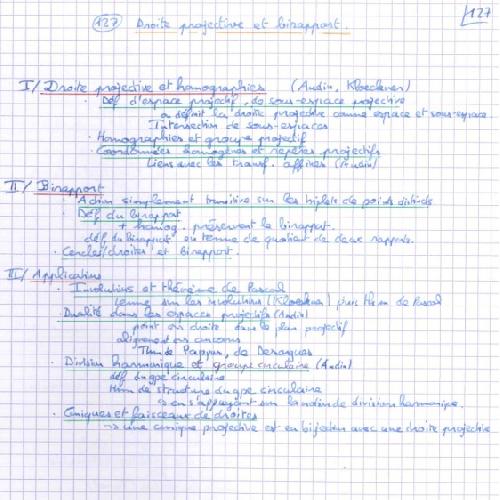 127 Droite projective et birapport.
127
I/ Droite projective et homographies (Audin, Kloeckner)
· Déf d'espace projectif, de sous-espace projective
on définit la droite projective comme espace et sous-espace.
Intersection de sous-espaces
· Homographies et groupe projectif
· Coordonnées homogènes et repères projectifs
Liens avec les transf. affines (Audin)
II/ Birapport
· Action simplement transitive sur les triplets de points distincts
· Déf du birapport
+ homog. préservent le birapport.
déf du birapport en terme de quotient de deux rapports.
· Cercles/droites et birapport.
III/ Applications
· Involutions et théorème de Pascal
sur les involutions (Kloeckner) puis thm de Pascal
· Dualité dans les espaces projectifs (Audin)
point en droite dans le plan projectif
alignement en concours
Thm de Pappus, de Desargues
· Division harmonique et groupe circulaire (Audin)
déf du gpe circulaire
thm de structure du gpe circulaire
→ en s'appuyant sur la notion de division harmonique.
· Coniques et faisceaux de droites
→ une conique projective est en bijection avec une droite projective